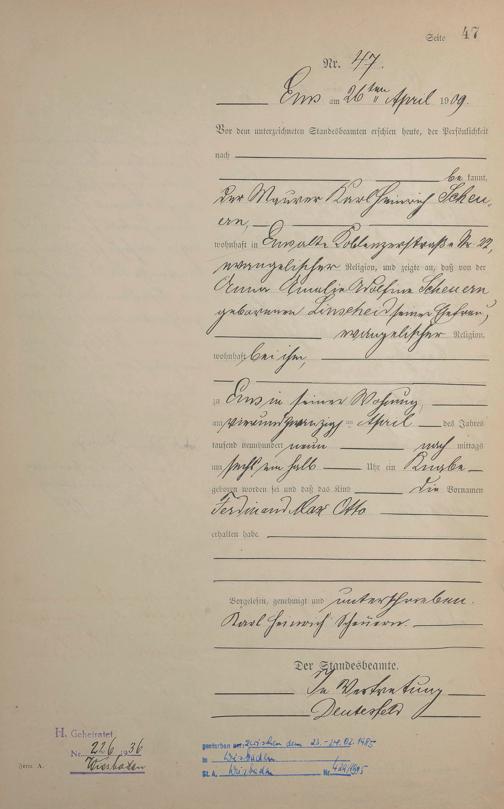 Seite 47
Nr. 47.
Ems am 26ten April 1909.
Vor dem unterzeichneten Standesbeamten erschien heute, der Persönlichkeit
nach
be kannt,
der Maurer Karl Heinrich Scheu-
ern,
wohnhaft in Ems, alte Koblenzerstraße Nr 22,
evangelischer Religion, und zeigte an, daß von der
Anna Amalie Adolfine Scheuern
geborenen Linscheid, seiner Ehefrau,
evangelischer Religion,
wohnhaft bei ihm,
zu Ems in seiner Wohnung,
am vierundzwanzigsten April des Jahres
tausend neunhundert neun nach mittags
um sechs ein halb Uhr ein Knabe
geboren worden sei und daß das Kind die Vornamen
Ferdinand Max Otto
erhalten habe.
Vorgelesen, genehmigt und unterschrieben.
Karl Heinrich Scheuern.
Der Standesbeamte.
In Vertretung
H. Geheiratet
Nr. 226 1936
Wiesbaden
Form A.
gestorben am: zwischen dem 23.-24.02.1985
in Wiesbaden
St. A. Wiesbaden Nr.